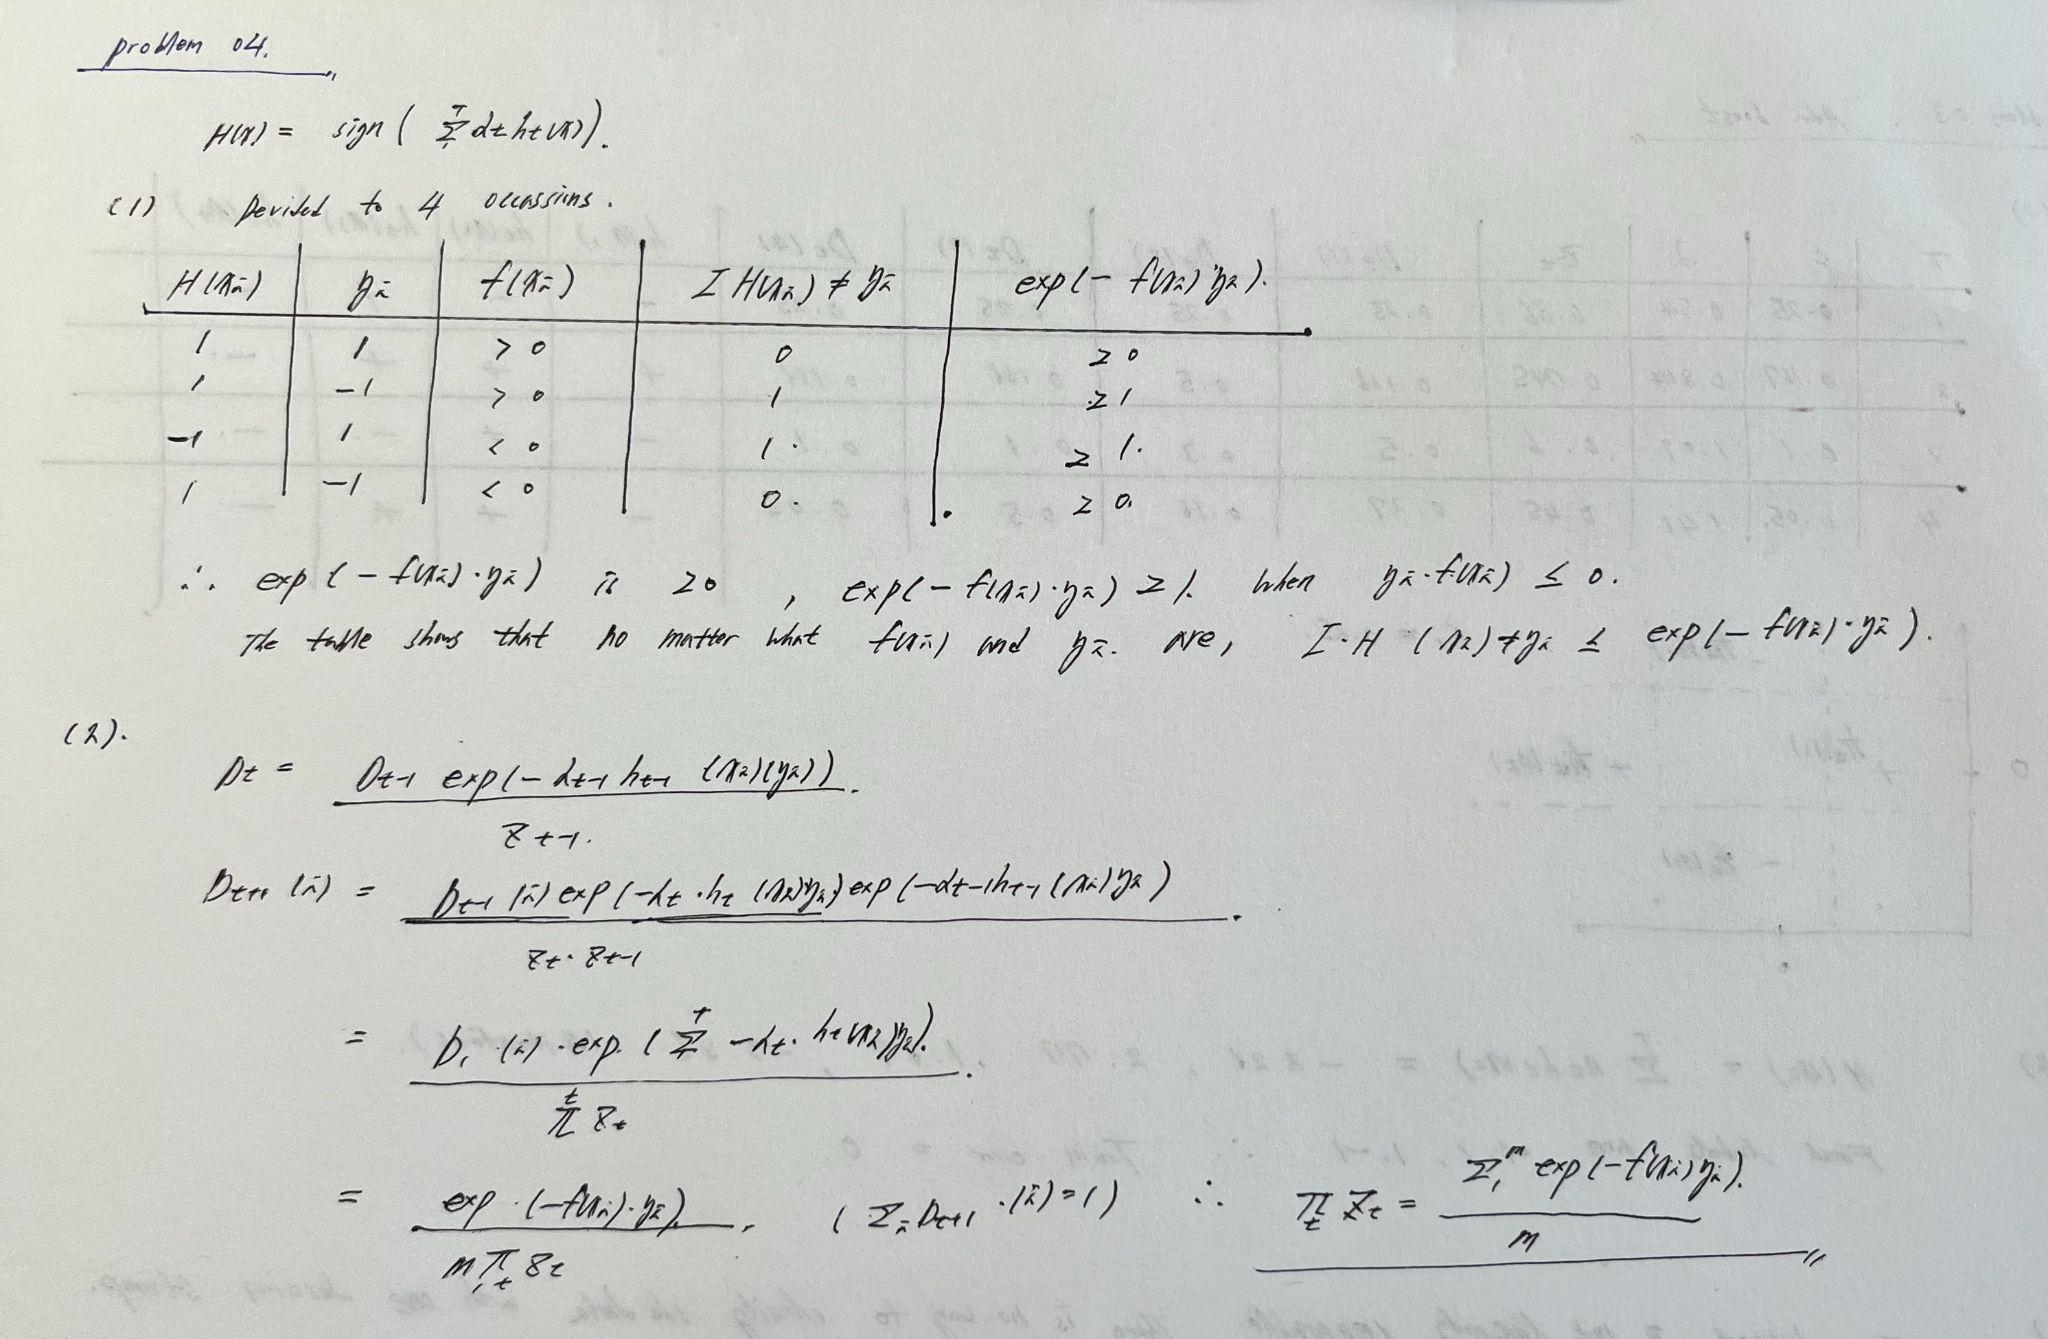 problem 04.
H(x) = sign ( Σ₁ᵀ αt ht(x) ).
(1) Devided to 4 occassions.
H(xi) | yi | f(xi) | I H(xi) ≠ yi | exp(- f(xi) yi).
1 | 1 | > 0 | 0 | ≥ 0
1 | -1 | > 0 | 1 | ≥ 1
-1 | 1 | < 0 | 1. | ≥ 1.
1 | -1 | < 0 | 0. | ≥ 0.
∴ exp (- f(xi)·yi) is ≥0 , exp(- f(xi)·yi) ≥ 1. when yi·f(xi) ≤ 0.
The table shows that no matter what f(xi) and yi. are, I·H (xi) ≠ yi ≤ exp(- f(xi)·yi).
(2).
Dt = Dt-1 exp(- αt-1 ht-1 (xi)(yi)) .
Zt-1.
Dt+1 (i) = Dt-1 (i) exp(-αt · ht (xi)yi) exp (-αt-1 ht-1 (xi)yi ) .
Zt · Zt-1
= D₁ (i) · exp. ( Σ₁ᵗ -αt· ht(xi)yi). .
π₁ᵗ Zt
= exp · (-f(xi)·yi) . ( Σi Dt+1 ·(i) = 1 ) ∴ πt Zt = Σ₁ᵐ exp (-f(xi) yi).
m π₁,t Zt m